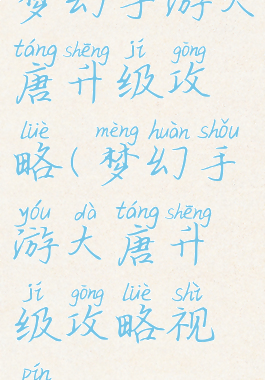 梦幻手游大
táng shēng jí gōng
唐升级攻
lüè mèng huàn shǒu
略(梦幻手
yóu dà táng shēng
游大唐升
jí gōng lüè shì
级攻略视
pín